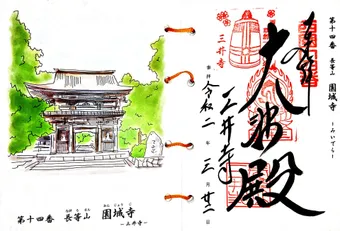 第十四番 長等山 園城寺
～みいでら～
奉拝
大師殿
三井寺
令和二年三月廿二日
三井寺
第十四番 長等山 園城寺
～三井寺～